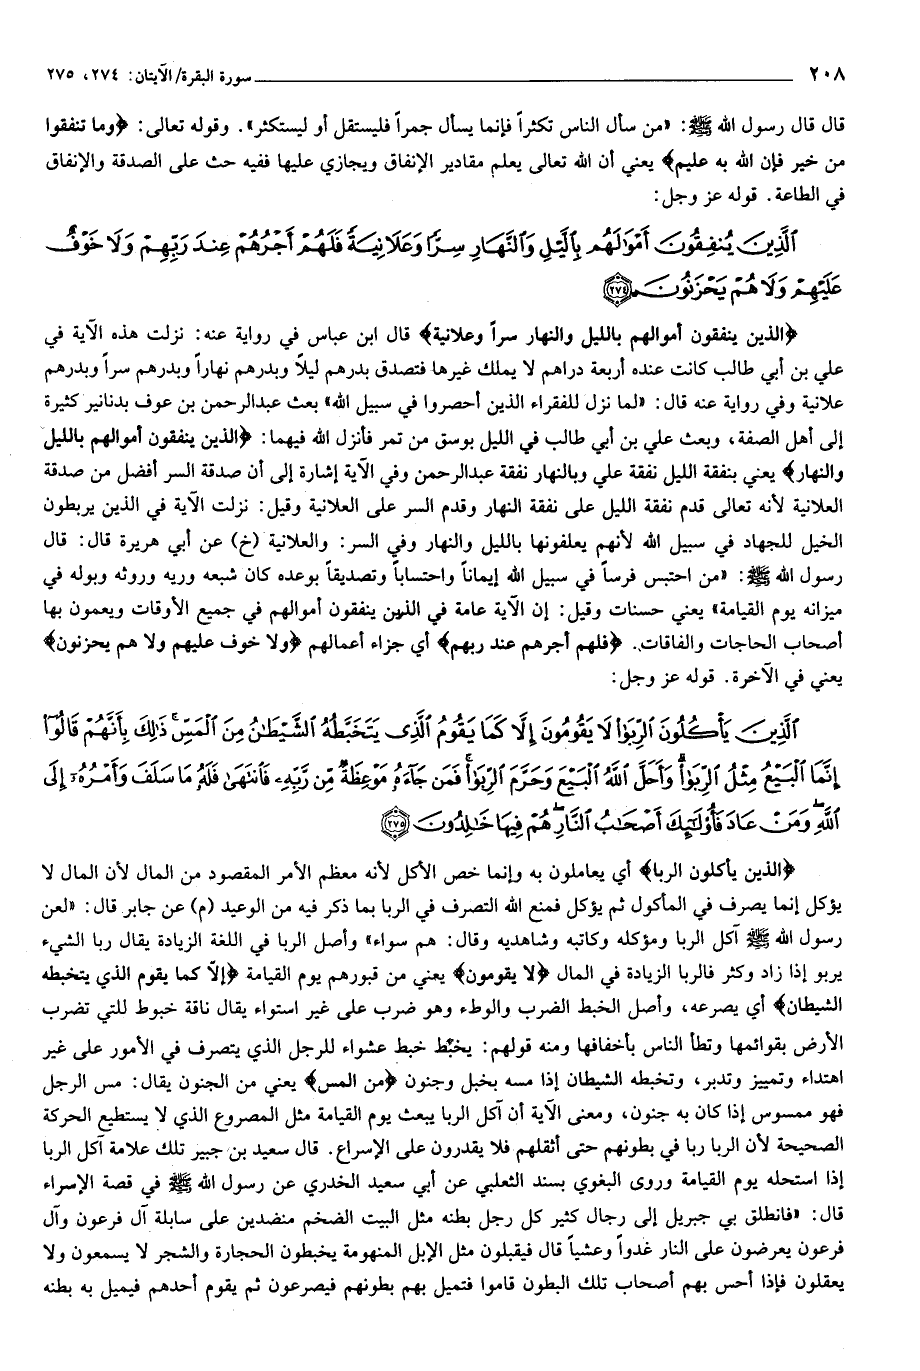 ٢٠٨ سورة البقرة/ الآيتان: ٢٧٤، ٢٧٥
قال قال رسول الله ﷺ: «من سأل الناس تكثراً فإنما يسأل جمراً فليستقل أو ليستكثر». وقوله تعالى: ﴿وما تنفقوا
من خير فإن الله به عليم﴾ يعني أن الله تعالى يعلم مقادير الإنفاق ويجازي عليها ففيه حث على الصدقة والإنفاق
في الطاعة. قوله عز وجل:
ٱلَّذِينَ يُنفِقُونَ أَمْوَٰلَهُم بِٱلَّيْلِ وَٱلنَّهَارِ سِرًّا وَعَلَانِيَةً فَلَهُمْ أَجْرُهُمْ عِندَ رَبِّهِمْ وَلَا خَوْفٌ
عَلَيْهِمْ وَلَا هُمْ يَحْزَنُونَ ٢٧٤
﴿الذين ينفقون أموالهم بالليل والنهار سراً وعلانية﴾ قال ابن عباس في رواية عنه: نزلت هذه الآية في
علي بن أبي طالب كانت عنده أربعة دراهم لا يملك غيرها فتصدق بدرهم ليلاً وبدرهم نهاراً وبدرهم سراً وبدرهم
علانية وفي رواية عنه قال: «لما نزل للفقراء الذين أحصروا في سبيل الله» بعث عبدالرحمن بن عوف بدنانير كثيرة
إلى أهل الصفة، وبعث علي بن أبي طالب في الليل بوسق من تمر فأنزل الله فيهما: ﴿الذين ينفقون أموالهم بالليل
والنهار﴾ يعني بنفقة الليل نفقة علي وبالنهار نفقة عبدالرحمن وفي الآية إشارة إلى أن صدقة السر أفضل من صدقة
العلانية لأنه تعالى قدم نفقة الليل على نفقة النهار وقدم السر على العلانية وقيل: نزلت الآية في الذين يربطون
الخيل للجهاد في سبيل الله لأنهم يعلفونها بالليل والنهار وفي السر: والعلانية (خ) عن أبي هريرة قال: قال
رسول الله ﷺ: «من احتبس فرساً في سبيل الله إيماناً واحتساباً وتصديقاً بوعده كان شبعه وريه وروثه وبوله في
ميزانه يوم القيامة» يعني حسنات وقيل: إن الآية عامة في الذين ينفقون أموالهم في جميع الأوقات ويعمون بها
أصحاب الحاجات والفاقات. ﴿فلهم أجرهم عند ربهم﴾ أي جزاء أعمالهم ﴿ولا خوف عليهم ولا هم يحزنون﴾
يعني في الآخرة. قوله عز وجل:
ٱلَّذِينَ يَأْكُلُونَ ٱلرِّبَوٰا۟ لَا يَقُومُونَ إِلَّا كَمَا يَقُومُ ٱلَّذِى يَتَخَبَّطُهُ ٱلشَّيْطَٰنُ مِنَ ٱلْمَسِّ ۚ ذَٰلِكَ بِأَنَّهُمْ قَالُوٓا۟
إِنَّمَا ٱلْبَيْعُ مِثْلُ ٱلرِّبَوٰا۟ ۗ وَأَحَلَّ ٱللَّهُ ٱلْبَيْعَ وَحَرَّمَ ٱلرِّبَوٰا۟ ۚ فَمَن جَآءَهُۥ مَوْعِظَةٌ مِّن رَّبِّهِۦ فَٱنتَهَىٰ فَلَهُۥ مَا سَلَفَ وَأَمْرُهُۥٓ إِلَى
ٱللَّهِ ۖ وَمَنْ عَادَ فَأُو۟لَٰٓئِكَ أَصْحَٰبُ ٱلنَّارِ ۖ هُمْ فِيهَا خَٰلِدُونَ ٢٧٥
﴿الذين يأكلون الربا﴾ أي يعاملون به وإنما خص الأكل لأنه معظم الأمر المقصود من المال لأن المال لا
يؤكل إنما يصرف في المأكول ثم يؤكل فمنع الله التصرف في الربا بما ذكر فيه من الوعيد (م) عن جابر قال: «لعن
رسول الله ﷺ آكل الربا ومؤكله وكاتبه وشاهديه وقال: هم سواء» وأصل الربا في اللغة الزيادة يقال ربا الشيء
يربو إذا زاد وكثر فالربا الزيادة في المال ﴿لا يقومون﴾ يعني من قبورهم يوم القيامة ﴿إلّا كما يقوم الذي يتخبطه
الشيطان﴾ أي يصرعه، وأصل الخبط الضرب والوطء وهو ضرب على غير استواء يقال ناقة خبوط للتي تضرب
الأرض بقوائمها وتطأ الناس بأخفافها ومنه قولهم: يخبّط خبط عشواء للرجل الذي يتصرف في الأمور على غير
اهتداء وتمييز وتدبر، وتخبطه الشيطان إذا مسه بخبل وجنون ﴿من المس﴾ يعني من الجنون يقال: مس الرجل
فهو ممسوس إذا كان به جنون، ومعنى الآية أن آكل الربا يبعث يوم القيامة مثل المصروع الذي لا يستطيع الحركة
الصحيحة لأن الربا ربا في بطونهم حتى أثقلهم فلا يقدرون على الإسراع. قال سعيد بن جبير تلك علامة آكل الربا
إذا استحله يوم القيامة وروى البغوي بسند الثعلبي عن أبي سعيد الخدري عن رسول الله ﷺ في قصة الإسراء
قال: «فانطلق بي جبريل إلى رجال كثير كل رجل بطنه مثل البيت الضخم منضدين على سابلة آل فرعون وآل
فرعون يعرضون على النار غدواً وعشياً قال فيقبلون مثل الإبل المنهومة يخبطون الحجارة والشجر لا يسمعون ولا
يعقلون فإذا أحس بهم أصحاب تلك البطون قاموا فتميل بهم بطونهم فيصرعون ثم يقوم أحدهم فيميل به بطنه